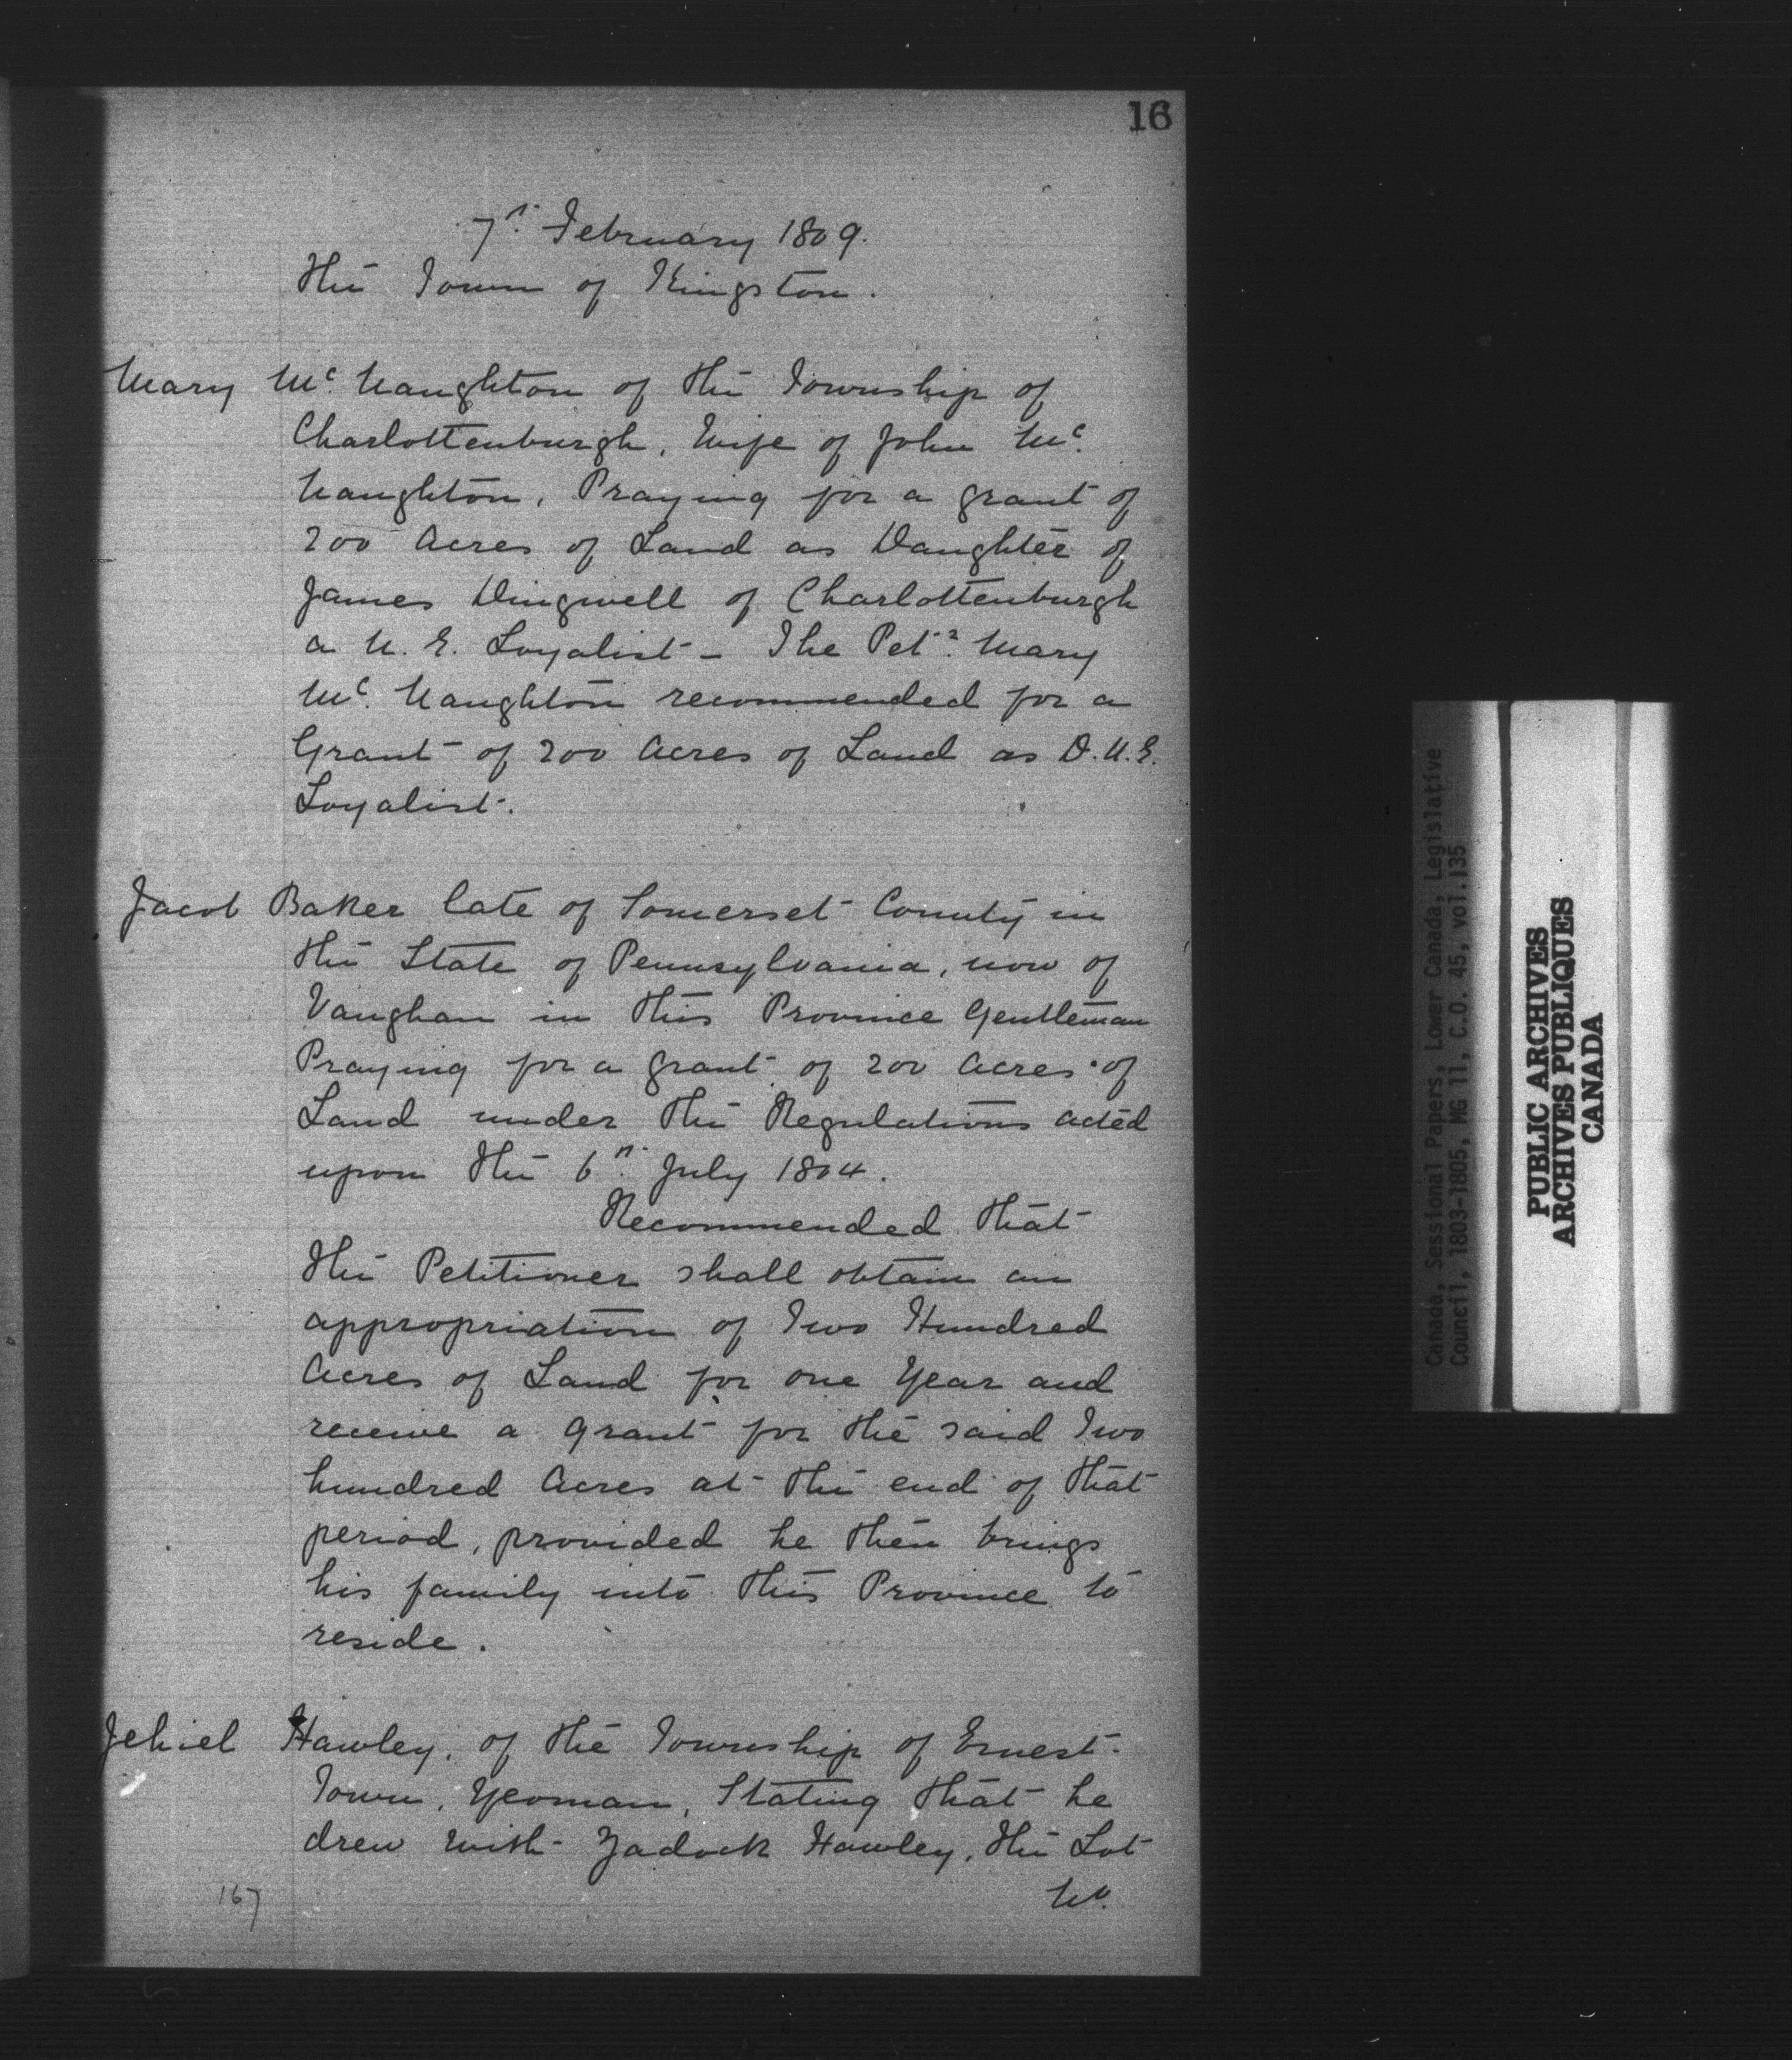 16
7th February 1809.
the Town of Kingston.
Mary Mc. Naughton of the Township of
Charlottenburgh, Wife of John Mc.
Naughton, Praying for a grant of
200 Acres of Land as Daughter of
James Dingwell of Charlottenburgh
a U. E. Loyalist - The Petr. Mary
Mc. Naughton recommended for a
Grant of 200 Acres of Land as D.U.E.
Loyalist.
Jacob Baker late of Somerset County in
the State of Pennsylvania, now of
Vaughan in this Province Gentleman
Praying for a grant of 200 Acres of
Land under the Regulations acted
upon the 6th July 1804.
Recommended that
the Petitioner shall obtain an
appropriation of Two Hundred
Acres of Land for one Year and
receive a grant for the said Two
hundred Acres at the end of that
period, provided he then brings
his family into this Province to
reside.
Jehiel Hawley, of the Township of Ernest-
Town, Yeoman, Stating that he
drew with Zadock Hawley, the Lot
No.
167
Canada, Sessional Papers, Lower Canada, Legislative
Council, 1803-1805, MG 11, C.O. 45, vol.135
PUBLIC ARCHIVES
ARCHIVES PUBLIQUES
CANADA